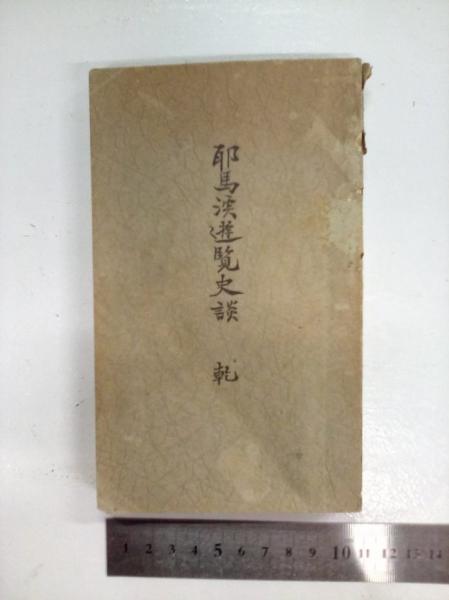 耶馬渓遊覧史談 乾
1 2 3 4 5 6 7 8 9 10 11 12 13 14